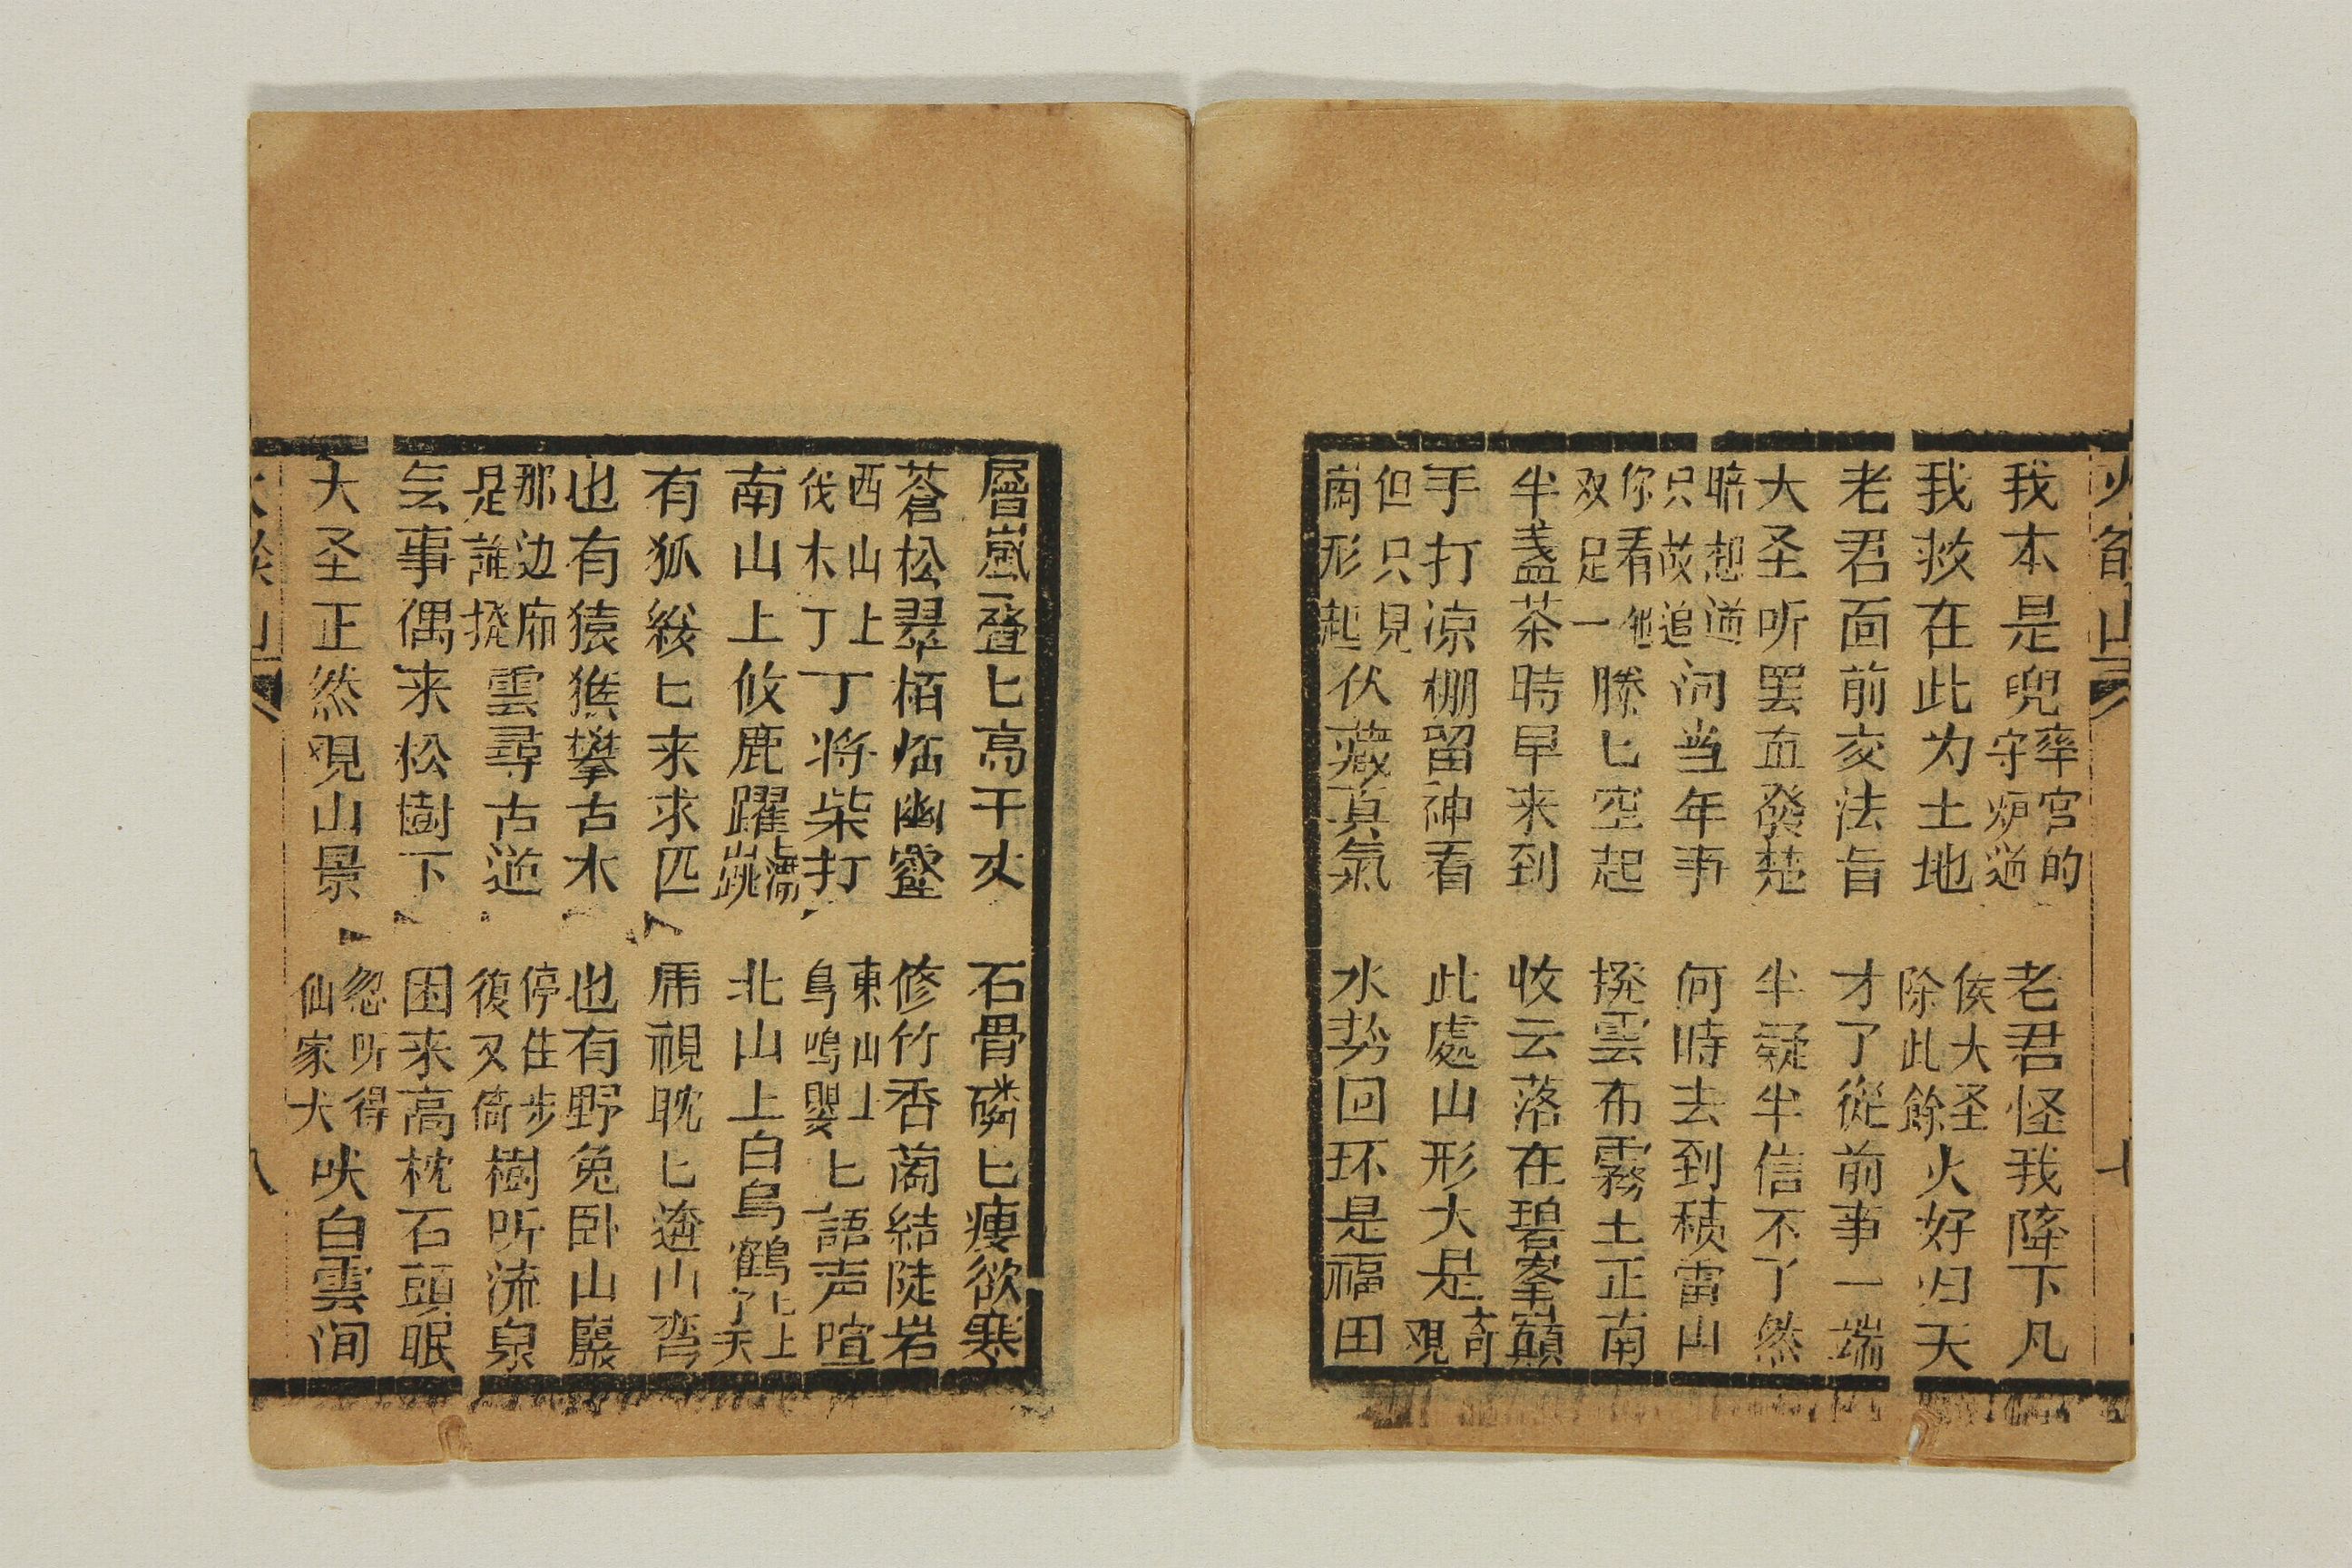 火焰山
七
我本是兜率宮的守炉道 老君怪我降下凡
我救在此为土地 侯大圣除此餘火好归天
老君面前交法旨 才了從前事一端
大圣听罢血發楚 半疑半信不了然
暗想道只故追问当年事 何時去到積雷山
你看他双足一縢匕空起 撥雲布霧土正南
半盞茶時早来到 收云落在碧峯巔
手打凉棚留神看 此處山形大是奇观
但只見兩形起伏藏真氣 水势回环是福田
層嵐叠匕高千丈 石骨磷匕瘦欲寒
蒼松翠栢临幽壑 修竹香蘭結陡岩
西山上伐木丁丁将柴打 東山上鳥鳴嬰匕語声喧
南山上攸鹿躍澗跳 北山上白鳥鶴匕上了天
有狐綏匕来求匹 虎視耽匕遶山弯
也有猿猴攀古木 也有野兔卧山巖
那边廂是誰撥雲尋古道 停住步復又倚樹听流泉
氣事偶来松樹下 困来高枕石頭眠
大圣正然观山景 忽听得仙家犬吠白雲间
八